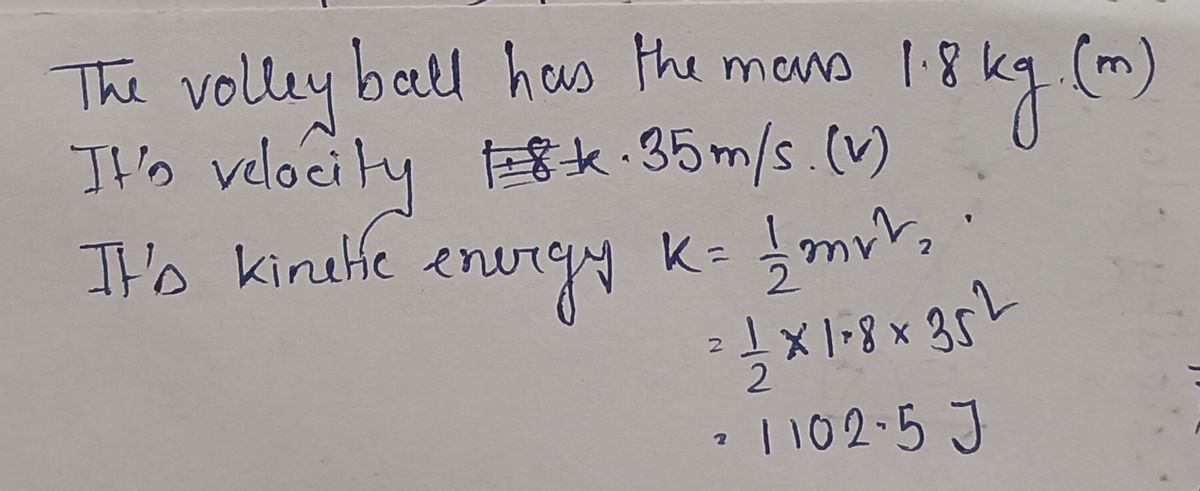 The volleyball has the mass 1.8 kg. (m)
It's velocity 35 m/s. (v)
It's kinetic energy K = 1/2 mv²
= 1/2 × 1.8 × 35²
= 1102.5 J